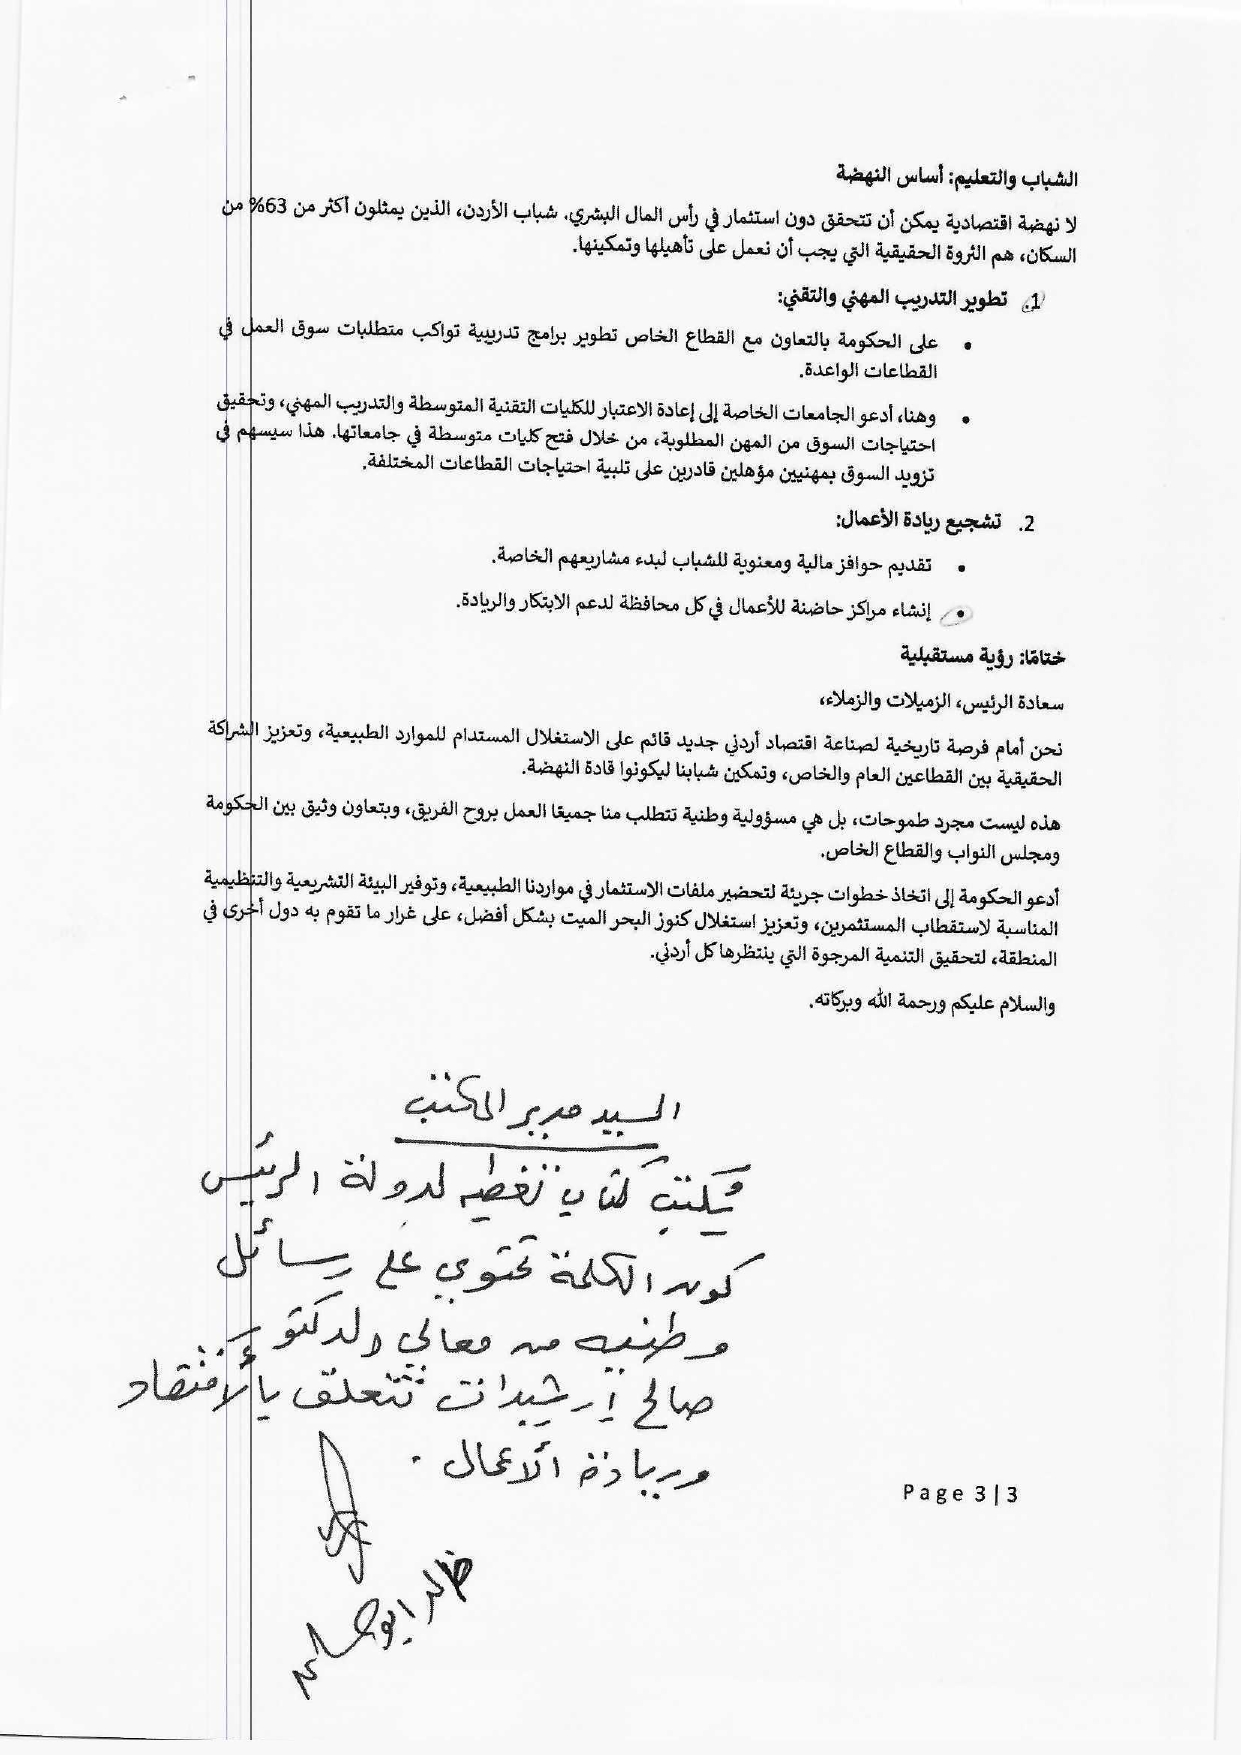 الشباب والتعليم: أساس النهضة
لا نهضة اقتصادية يمكن أن تتحقق دون استثمار في رأس المال البشري. شباب الأردن، الذين يمثلون أكثر من 63% من
السكان، هم الثروة الحقيقية التي يجب أن نعمل على تأهيلها وتمكينها.
1. تطوير التدريب المهني والتقني:
• على الحكومة بالتعاون مع القطاع الخاص تطوير برامج تدريبية تواكب متطلبات سوق العمل في
القطاعات الواعدة.
• وهنا، أدعو الجامعات الخاصة إلى إعادة الاعتبار للكليات التقنية المتوسطة والتدريب المهني، وتحقيق
احتياجات السوق من المهن المطلوبة، من خلال فتح كليات متوسطة في جامعاتها. هذا سيسهم في
تزويد السوق بمهنيين مؤهلين قادرين على تلبية احتياجات القطاعات المختلفة.
2. تشجيع ريادة الأعمال:
• تقديم حوافز مالية ومعنوية للشباب لبدء مشاريعهم الخاصة.
• إنشاء مراكز حاضنة للأعمال في كل محافظة لدعم الابتكار والريادة.
ختامًا: رؤية مستقبلية
سعادة الرئيس، الزميلات والزملاء،
نحن أمام فرصة تاريخية لصناعة اقتصاد أردني جديد قائم على الاستغلال المستدام للموارد الطبيعية، وتعزيز الشراكة
الحقيقية بين القطاعين العام والخاص، وتمكين شبابنا ليكونوا قادة النهضة.
هذه ليست مجرد طموحات، بل هي مسؤولية وطنية تتطلب منا جميعًا العمل بروح الفريق، وبتعاون وثيق بين الحكومة
ومجلس النواب والقطاع الخاص.
أدعو الحكومة إلى اتخاذ خطوات جريئة لتحضير ملفات الاستثمار في مواردنا الطبيعية، وتوفير البيئة التشريعية والتنظيمية
المناسبة لاستقطاب المستثمرين، وتعزيز استغلال كنوز البحر الميت بشكل أفضل، على غرار ما تقوم به دول أخرى في
المنطقة، لتحقيق التنمية المرجوة التي ينتظرها كل أردني.
والسلام عليكم ورحمة الله وبركاته.
السيد مدير المكتب
يُكتب كتاب تغطيه لدولة الرئيس
كون الكلمة تحتوي على رسائل
وطنيه من معالي الدكتور
صالح ارشيدات تتعلق بالأقتصاد
وريادة ألاعمال .
خالد ابو حسان
Page 3|3